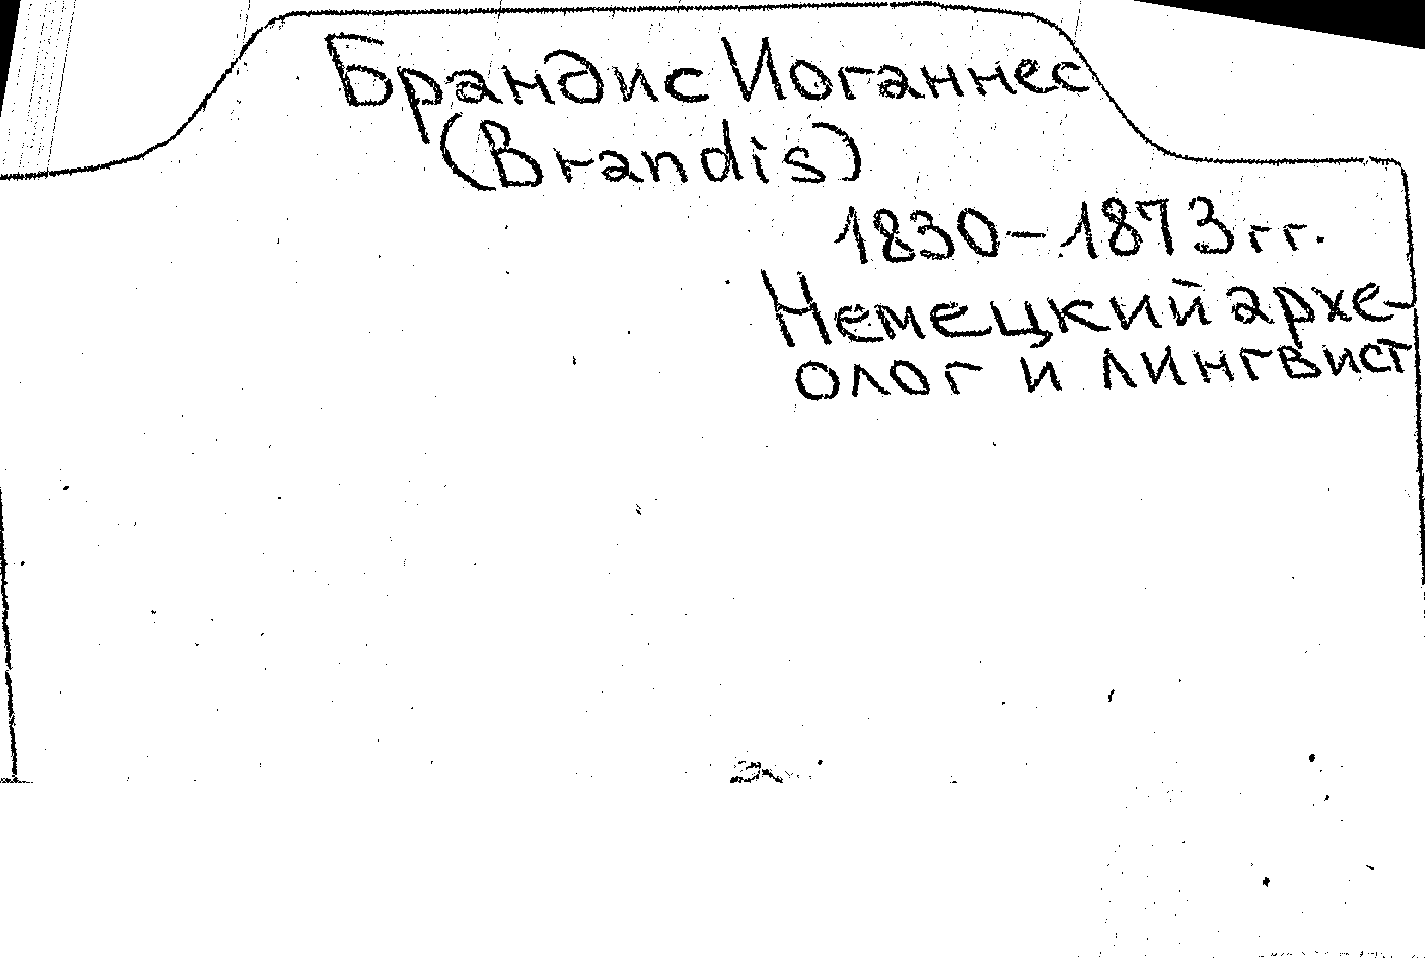 Брандис Иоганнес
(Brandis)
1830-1873 гг.
Немецкий архе-
олог и лингвист